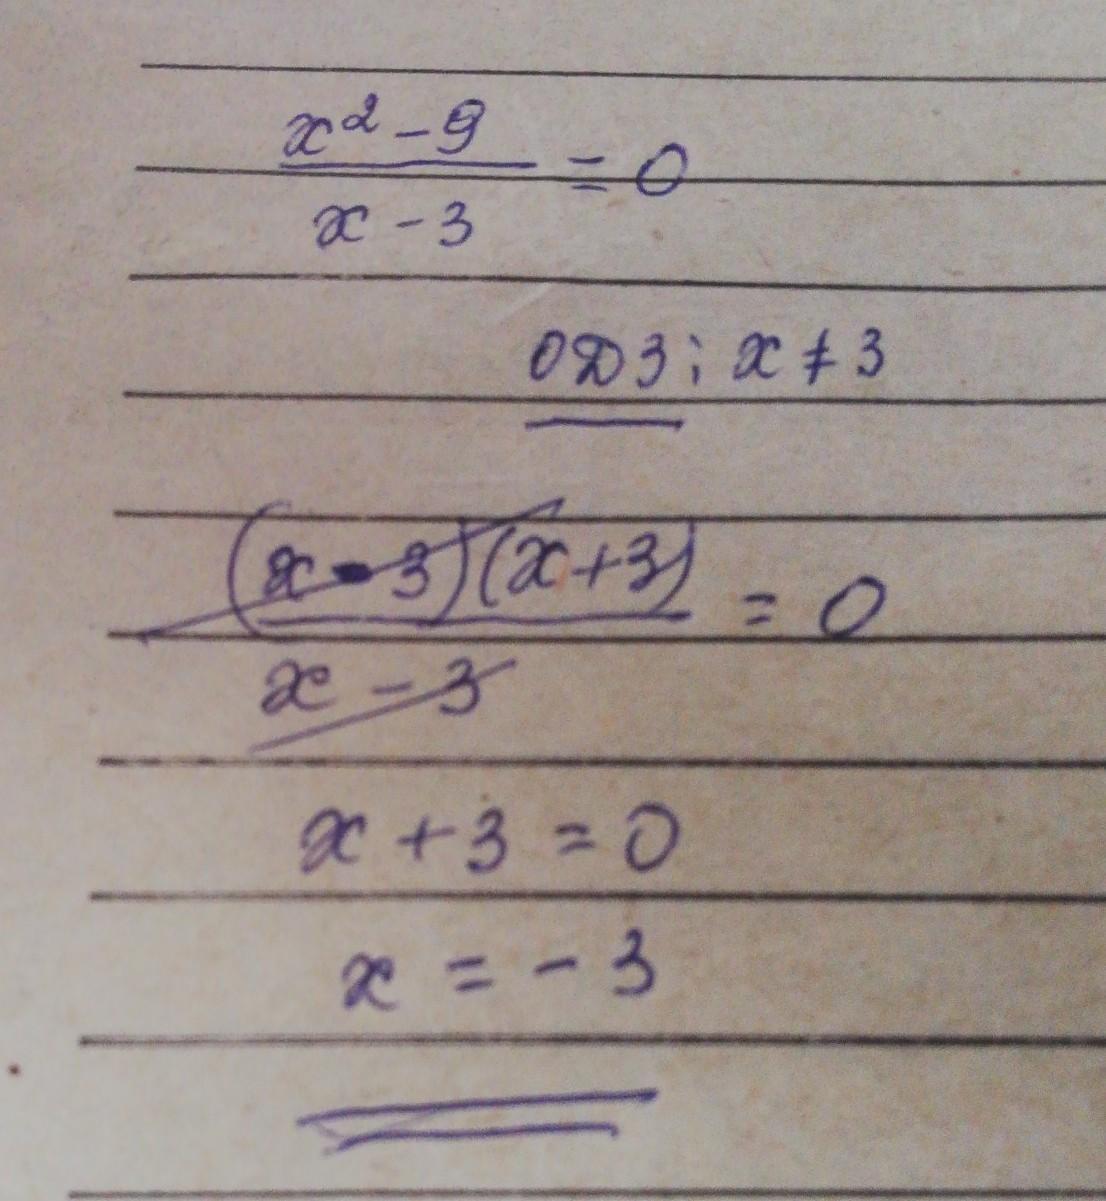 x² - 9
x - 3 = 0
ОДЗ: x ≠ 3
(x - 3)(x + 3)
x - 3 = 0
x + 3 = 0
x = - 3